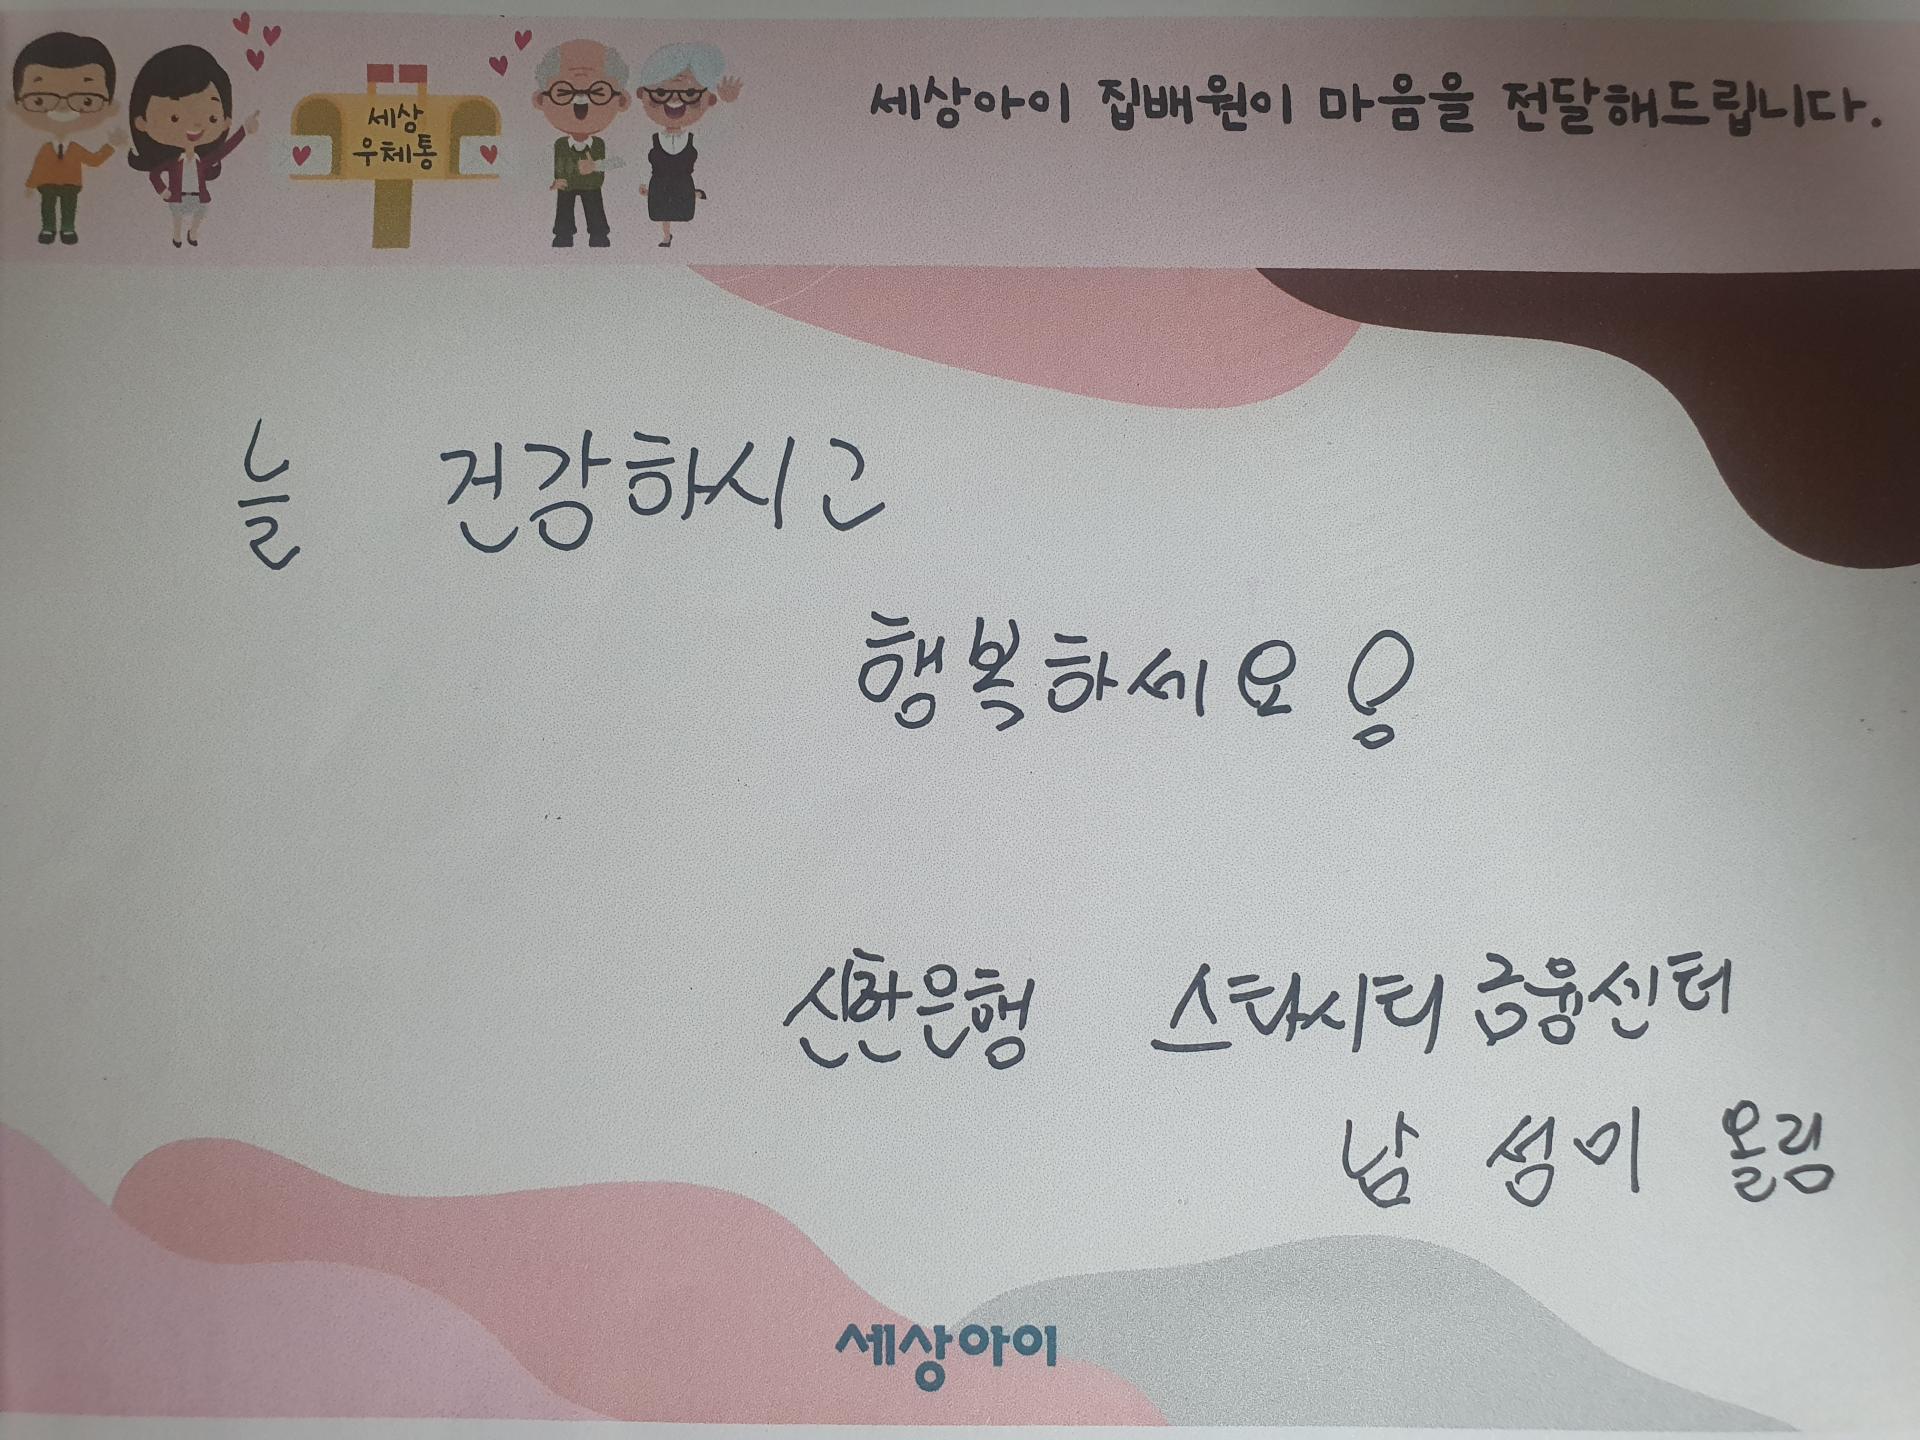 세상아이 집배원이 마음을 전달해드립니다.
세상
우체통
늘 건강하시고
행복하세요!
신한은행 스타시티금융센터
남 성미 올림
세상아이